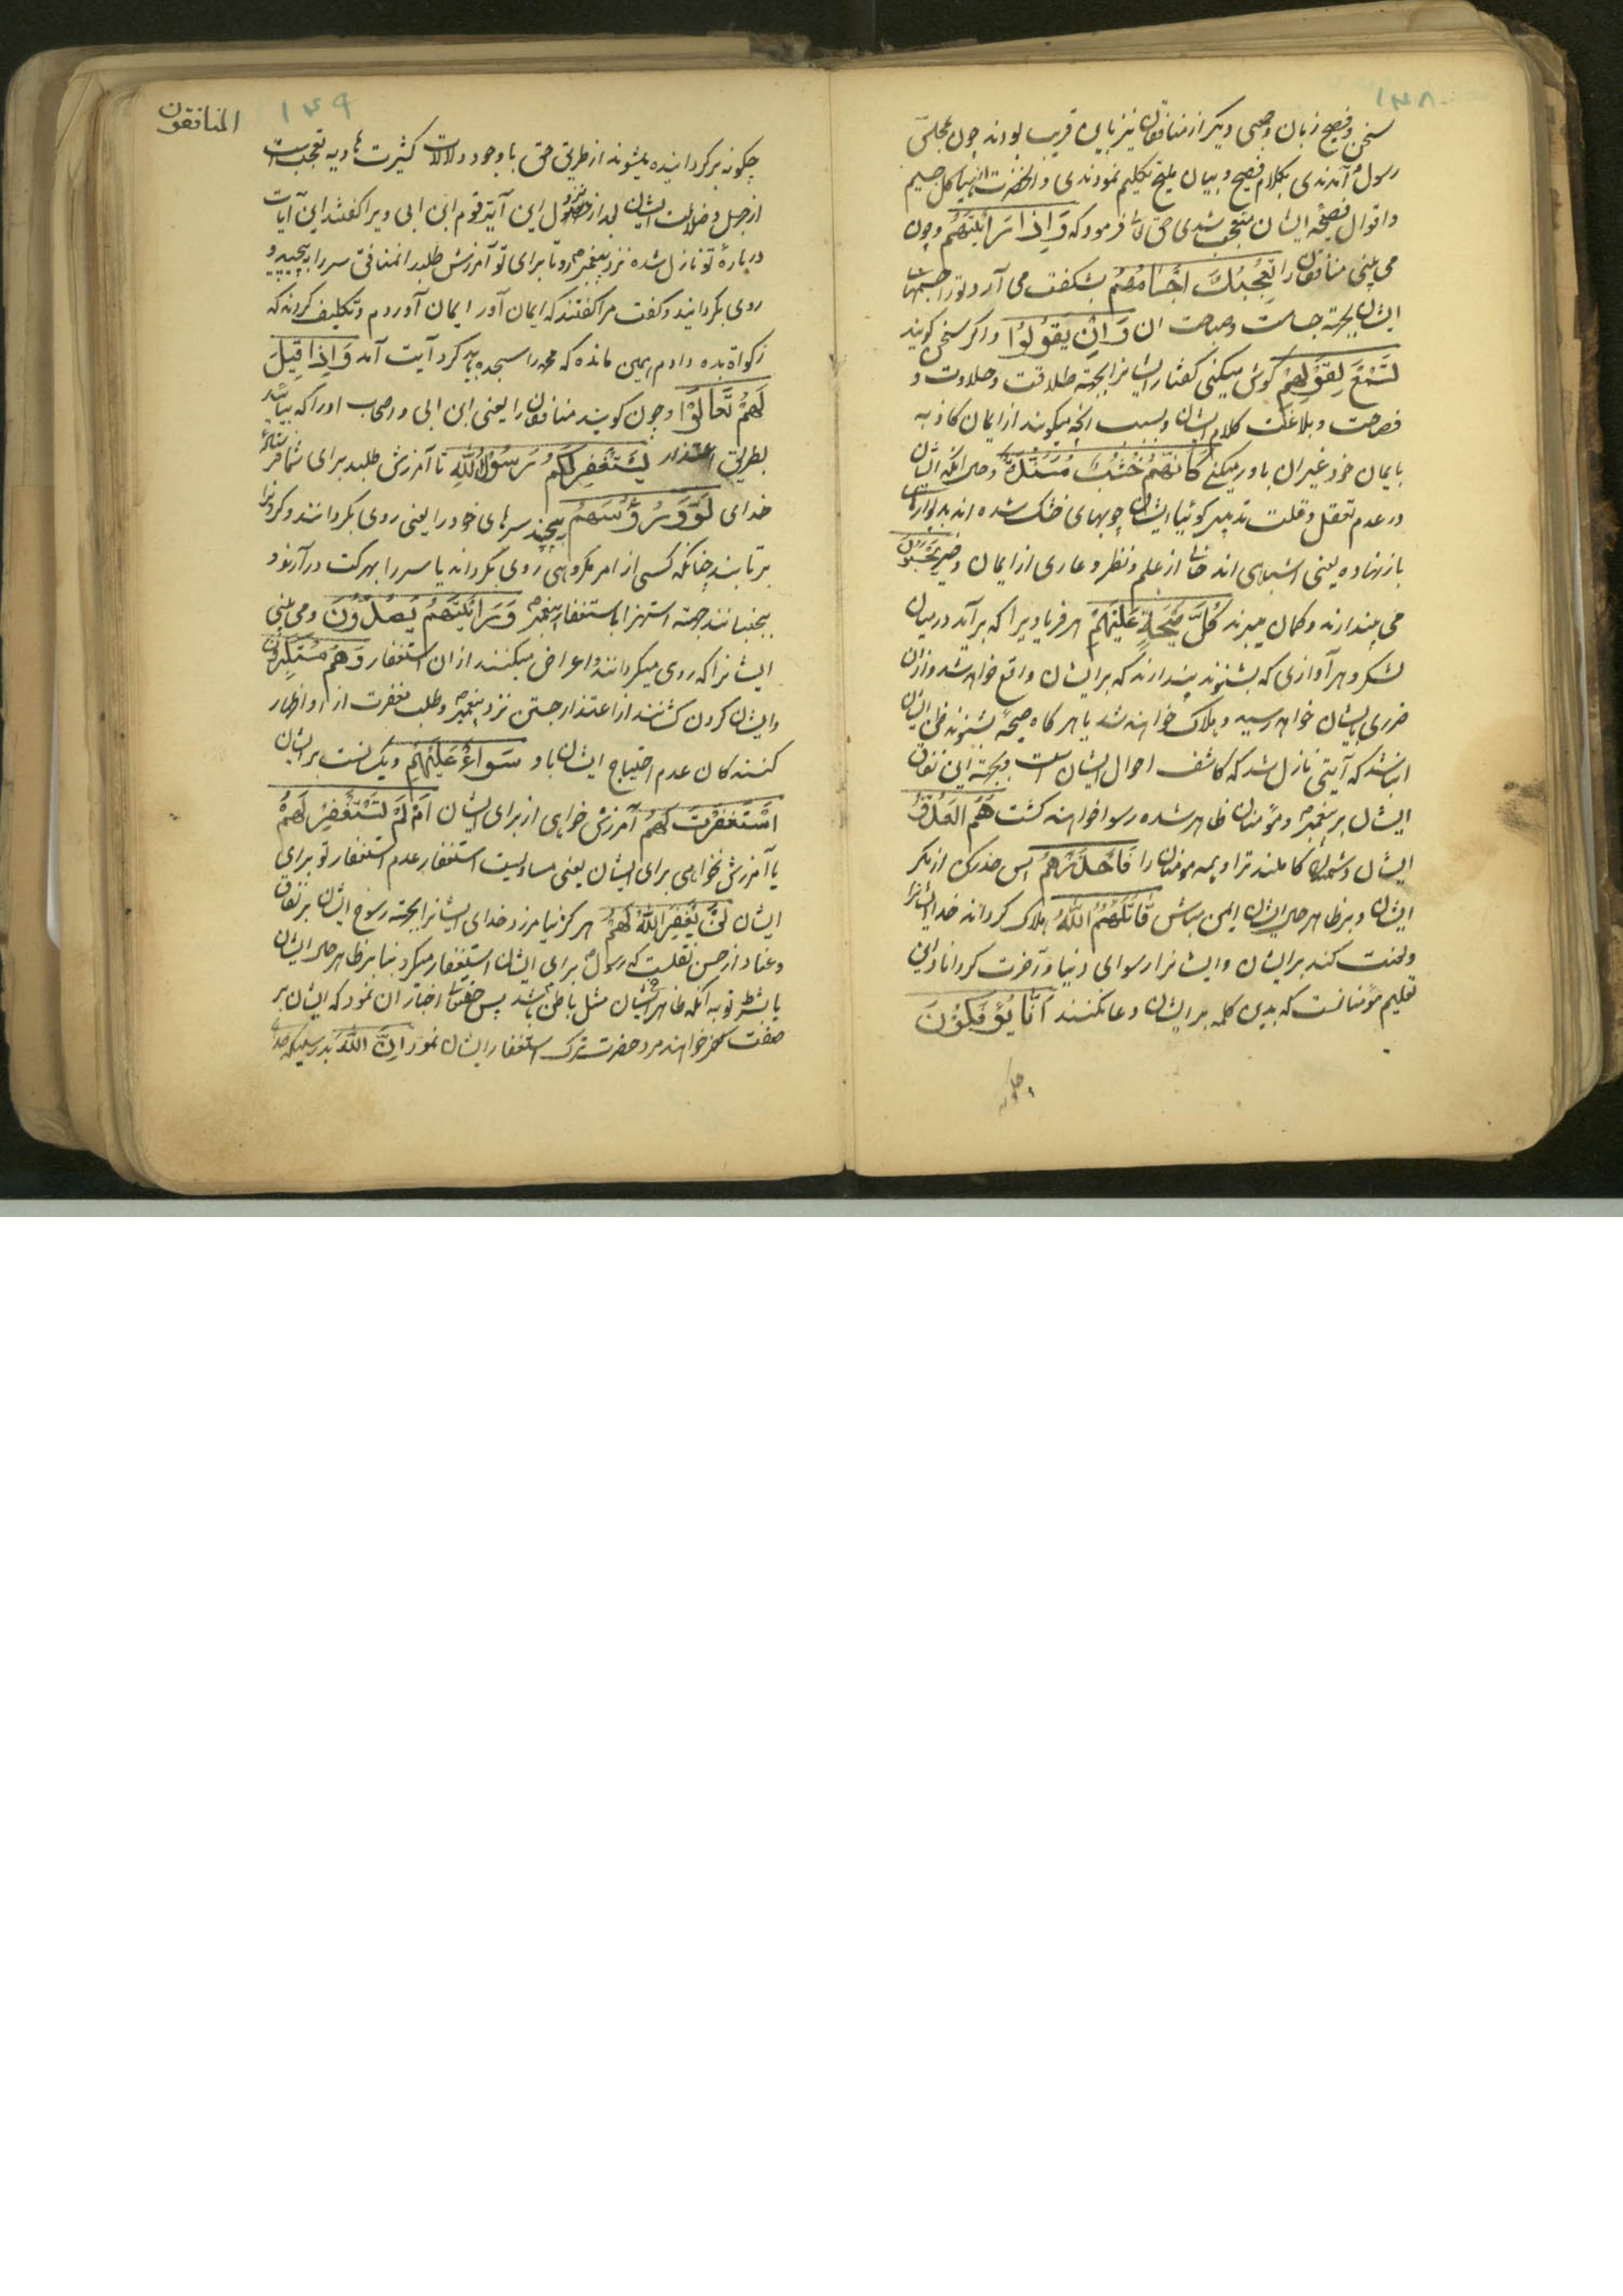 ۱۴۸
سخن و فصیح زبان و جمعی دیگر از منافقان نیز باین قریب بودند چون بمجلس
رسول آمدندی بکلام فصیح و بیان ملیح تکلیم نمودندی و آنحضرت از هیاکل جسیم
و اقوال فصیحه ایشان متعجب شدی حق تع فرمود که وَاِذَا رَاَیْتَهُمْ و چون
می بینی منافقان را تُعْجِبُكَ اَجْسَامُهُمْ بشکفت می آرد تو را جسمهای
ایشان بجهة جسامت و صباحت ان وَاِنْ یَقُوْلُوْا و اکر سخن کویند
تَسْمَعْ لِقَوْلِهِمْ کوش میکنی کفتار ایشانرا بجهة طلاقت و حلاوت و
فصاحت و بلاغت کلام ایشان و بسبب انچه میکویند از ایمان کاذبه
بایمان خود غیر ان باور میکنی کَاَنَّهُمْ خُشُبٌ مُسَنَّدَةٌ و حال انکه ایشان
در عدم تعقل و قلت تدبیر کوئیا ایشان چوبهای خشک شده اند بدیوارهای
باز نهاده یعنی اشباهی اند خالی از علم و نظر و عاری از ایمان و خیر یَحْسَبُوْنَ
می پندارند و کمان میبرند کُلَّ صَیْحَةٍ عَلَیْهِمْ هر فریادیرا که برآید در میان
لشکر و هر آوازی که بشنوند پندارند که بر ایشان واقع خواهد شد و ازان
ضرری بایشان خواهد رسید و هلاک خواهند شد یا هر کاه صیحهٔ بشنوند ظن ایشان
ان باشد که آیتی نازل شد که کاشف احوال ایشان است و بجهة این نفاق
ایشان بر پیغمبر و مؤمنان ظاهر شده رسوا خواهند کشت هُمُ الْعَدُوُّ
ایشان دشمنان کاملند ترا و همه مومنان را فَاحْذَرْهُمْ پس حذر کن از مکر
ایشان و بر ظاهر حال ایشان ایمن مباش قَاتَلَهُمُ اللّٰهُ هلاک کرداند خدا ایشانرا
و لعنت کند بر ایشان و ایشانرا رسوای دنیا و آخرت کرداناد این
تعلیم مؤمنانست که بدین کلمه بر ایشان دعا کنند اَنّٰی یُؤْفَکُوْنَ
چکونه
المنافقون
۱۴۹
چکونه برکردانیده میشوند از طریق حق با وجود دلالات کثیرت هادیه تعجب است
از جهل و ضلالت ایشان بعد از نزول این آیة قوم ابن ابی ویرا کفتند این آیات
دربارهٔ تو نازل شده نزد پیغمبر رو تا برای تو آمرزش طلبد انمنافق سر را بپیچید و
روی بکردانید و کفت مرا کفتند که ایمان آور ایمان آوردم و تکلیف کردند که
زکواة بده دادم همین مانده که محمد را سجده باید کرد آیت آمد وَاِذَا قِیْلَ
لَهُمْ تَعَالَوْا و چون کویند منافقان را یعنی ابن ابی و اصحاب او را که بیائید
بطریق اعتذار یَسْتَغْفِرْ لَکُمْ رَسُوْلُ اللّٰهِ تا آمرزش طلبد برای شما فرستادهٔ
خدای لَوَّوْا رُؤُسَهُمْ بپیچند سرهای خود را یعنی روی بکردانند و کردن را
برتابند چنانکه کسی از امر مکروهی روی بکرداند یا سر را بحرکت درآرند و
بجنبانند بجهة استهزا باستغفار پیغمبر وَرَاَیْتَهُمْ یَصُدُّوْنَ و می بینی
ایشانرا که روی میکردانند و اعراض میکنند از ان استغفار وَهُمْ مُسْتَکْبِرُوْنَ
و ایشان کردن کشانند از اعتذار جستن نزد پیغمبر و طلب مغفرت از او اظهار
کنندکان عدم احتیاج ایشان باو سَوَاءٌ عَلَیْهِمْ و یکسانست بر ایشان
اَسْتَغْفَرْتَ لَهُمْ آمرزش خواهی از برای ایشان اَمْ لَمْ تَسْتَغْفِرْ لَهُمْ
یا آمرزش نخواهی برای ایشان یعنی مساویست استغفار و عدم استغفار تو برای
ایشان لَنْ یَغْفِرَ اللّٰهُ لَهُمْ هرکز نیامرزد خدای ایشانرا بجهة رسوخ ایشان بر نفاق
و عناد از حسن نقلست که رسول برای ایشان استغفار میکرد بنا بر ظاهر حال ایشان
یا بشرط توبه انکه ظاهر ایشان مثل باطن باشد پس حقتعالی اخبار ان نمود که ایشان بر
صفت کفر خواهند مرد حضرت ترک استغفار ایشان نمود اِنَّ اللّٰهَ بدرستیکه خدای